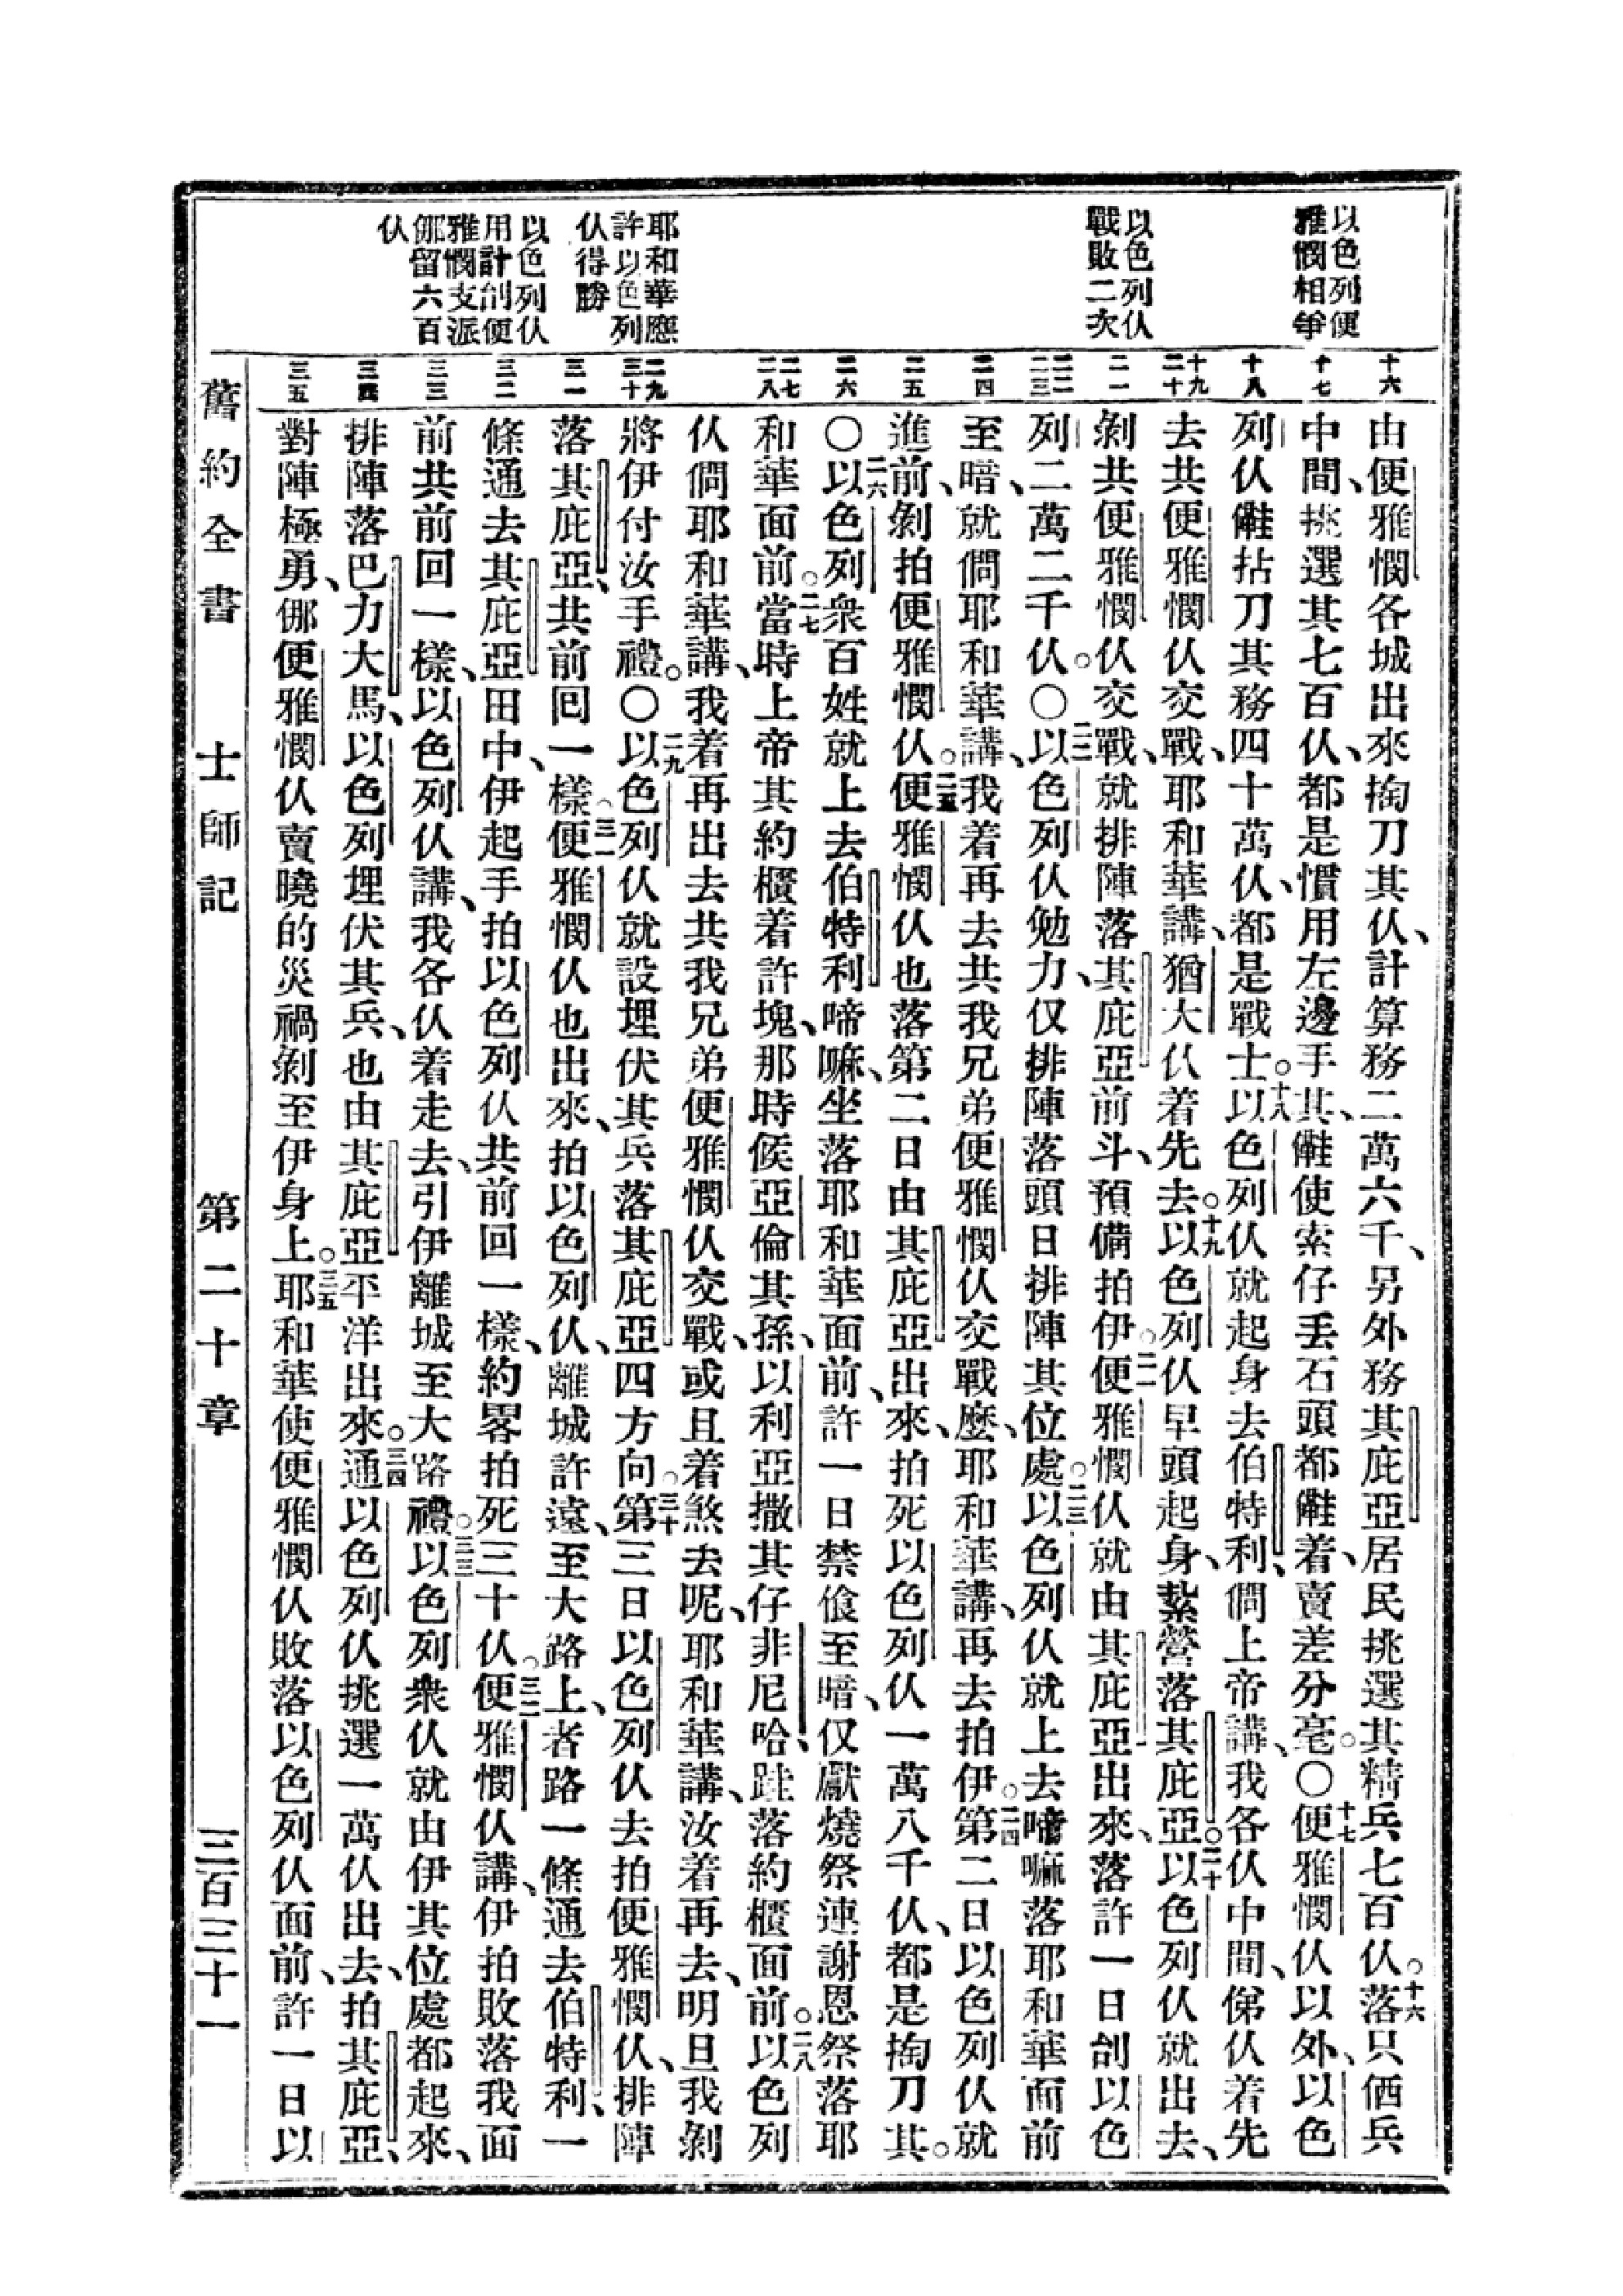 以色列便
雅憫相爭
以色列仈
戰敗二次
耶和華應
許以色列
仈得勝
以色列仈
用計剖便
雅憫支派
㑚留六百
仈
十六
十七
十八
十九
二十
二一
二二
二三
二四
二五
二六
二七
二八
二九
三十
三一
三二
三三
三四
三五
由便雅憫各城出來掏刀其仈、計算務二萬六千、另外務其庇亞居民挑選其精兵七百仈。十六落只㐰兵
中間、挑選其七百仈、都是慣用左邊手其、㒰使索仔丢石頭都㒰着、賣差分毫。〇十七便雅憫仈以外、以色
列仈㒰拈刀其務四十萬仈、都是戰士。十八以色列仈就起身去伯特利、問上帝講、我各仈中間、俤仈着先
去共便雅憫仈交戰、耶和華講、猶大仈着先去。十九以色列仈早頭起身、紮營落其庇亞。二十以色列仈就出去、
剝共便雅憫仈交戰、就排陣落其庇亞前斗、預備拍伊。二一便雅憫仈就由其庇亞出來、落許一日刣以色
列二萬二千仈。〇二二以色列仈勉力、仅排陣落頭日排陣其位處。二三以色列仈就上去啼嘛落耶和華面前
至暗、就問耶和華講、我着再去共我兄弟便雅憫仈交戰麽、耶和華講、再去拍伊。二四第二日以色列仈就
進前、剝拍便雅憫仈。二五便雅憫仈也落第二日由其庇亞出來、拍死以色列仈一萬八千仈、都是掏刀其。
〇二六以色列衆百姓就上去伯特利啼嘛、坐落耶和華面前、許一日禁飱至暗、仅獻燒祭連謝恩祭落耶
和華面前。二七當時上帝其約櫃着許塊、那時候亞倫其孫、以利亞撒其仔非尼哈、跬落約櫃面前。二八以色列
仈問耶和華講、我着再出去共我兄弟便雅憫仈交戰、或且着煞去呢、耶和華講、汝着再去、明旦我剝
將伊付汝手禮。〇二九以色列仈就設埋伏其兵落其庇亞四方向。三十第三日以色列仈去拍便雅憫仈、排陣
落其庇亞、共前回一樣。三一便雅憫仈也出來、拍以色列仈、離城許遠、至大路上、者路一條通去伯特利、一
條通去其庇亞田中、伊起手拍以色列仈共前回一樣、約畧拍死三十仈。三二便雅憫仈講、伊拍敗落我面
前共前回一樣、以色列仈講、我各仈着走去、引伊離城至大路禮。三三以色列衆仈就由伊其位處都起來、
排陣落巴力大馬、以色列埋伏其兵、也由其庇亞平洋出來。三四通以色列仈挑選一萬仈出去、拍其庇亞、
對陣極勇、㑚便雅憫仈賣曉的災禍剝至伊身上。三五耶和華使便雅憫仈敗落以色列仈面前、許一日以
舊約全書　士師記　第二十章　三百三十一